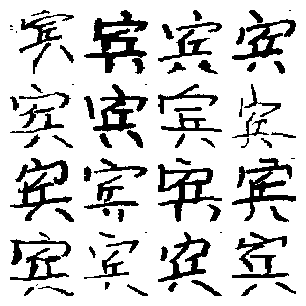 宾宾宾宾
宾宾宾宾
宾宾宾宾
宾宾宾宾